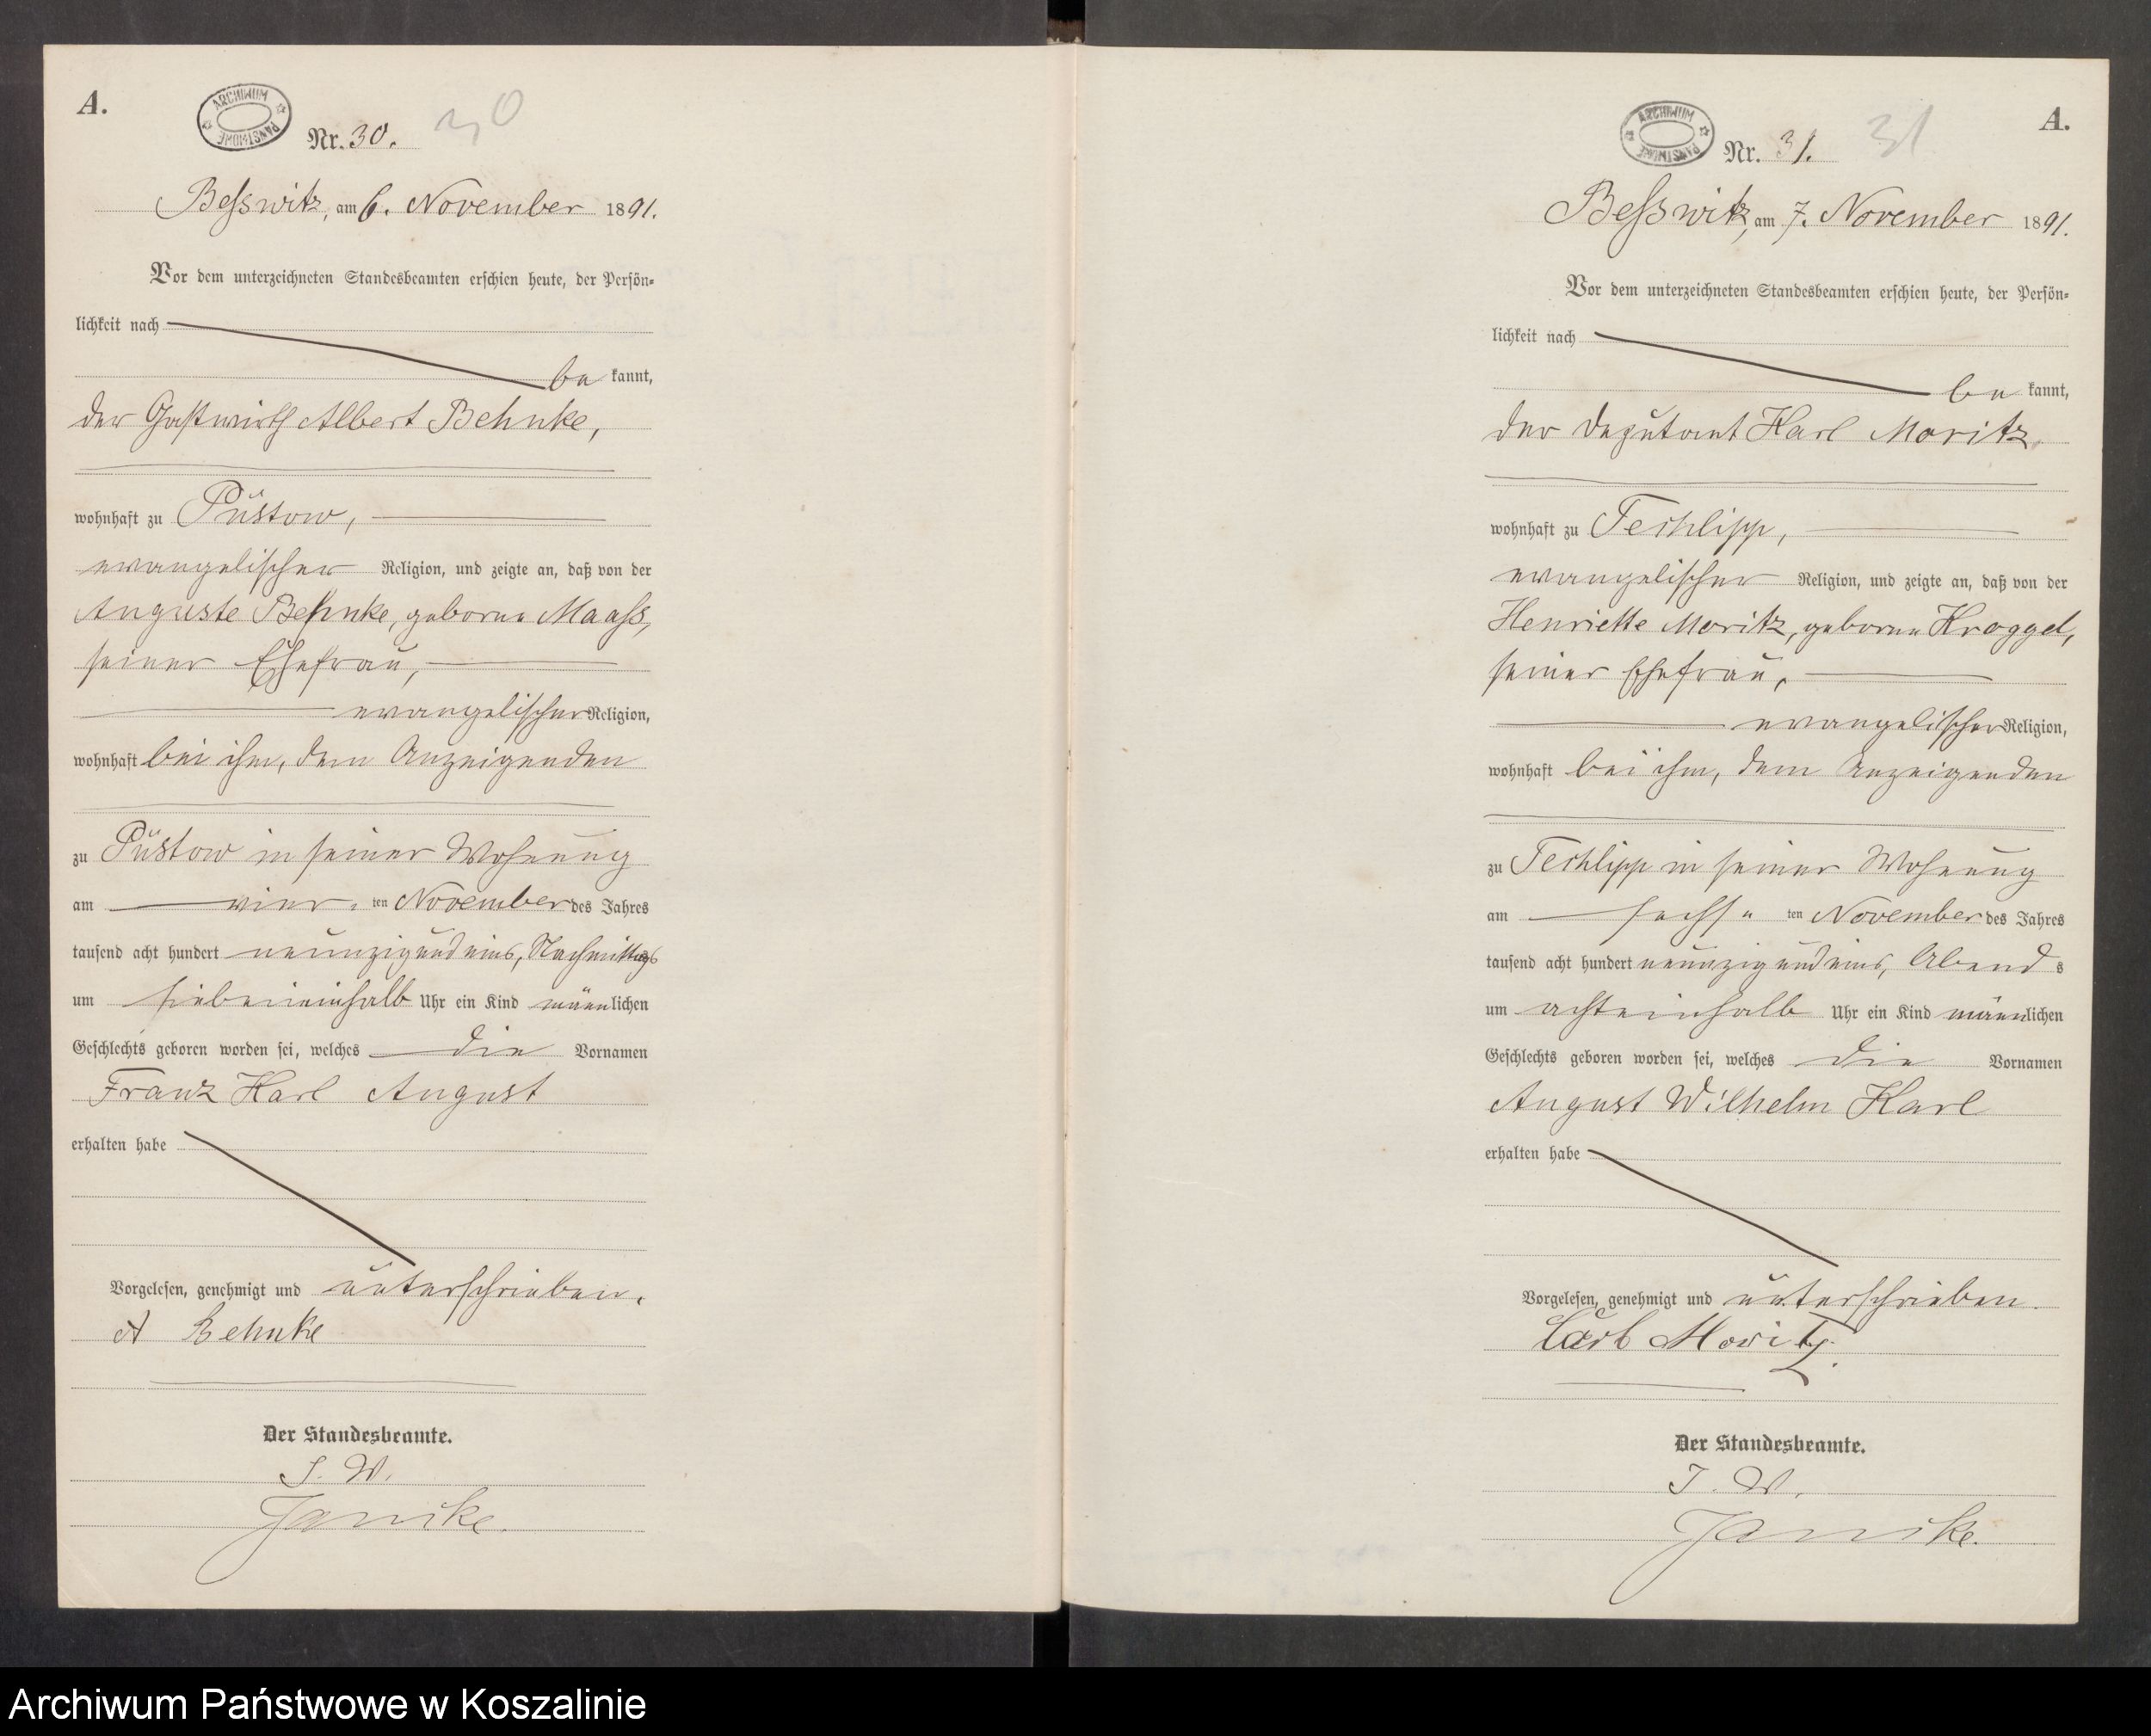 A.
ARCHIWUM PAŃSTWOWE
Nr. 30.
30
Besswitz, am 6. November 1891.
Vor dem unterzeichneten Standesbeamten erschien heute, der Persön-
lichkeit nach
be kannt,
der Gastwirth Albert Behnke,
wohnhaft zu Püstow,
evangelischer Religion, und zeigte an, daß von der
Auguste Behnke, geborne Maass,
seiner Ehefrau,
evangelischer Religion,
wohnhaft bei ihm, dem Anzeigenden
zu Püstow in seiner Wohnung
am vier ten November des Jahres
tausend acht hundert neunzig und eins, Nachmittags
um siebeneinhalb Uhr ein Kind männlichen
Geschlechts geboren worden sei, welches die Vornamen
Franz Karl August
erhalten habe
Vorgelesen, genehmigt und unterschrieben.
A Behnke
Der Standesbeamte.
I. V.
Janike.
A.
ARCHIWUM PAŃSTWOWE
Nr. 31.
31
Besswitz, am 7. November 1891.
Vor dem unterzeichneten Standesbeamten erschien heute, der Persön-
lichkeit nach
be kannt,
der Deputant Karl Moritz,
wohnhaft zu Techlipp,
evangelischer Religion, und zeigte an, daß von der
Henriette Moritz, geborne Kroggel,
seiner Ehefrau,
evangelischer Religion,
wohnhaft bei ihm, dem Anzeigenden
zu Techlipp in seiner Wohnung
am sechs ten November des Jahres
tausend acht hundert neunzig und eins, Abend s
um achteinhalb Uhr ein Kind männlichen
Geschlechts geboren worden sei, welches die Vornamen
August Wilhelm Karl
erhalten habe
Vorgelesen, genehmigt und unterschrieben.
Carl Moritz.
Der Standesbeamte.
I. V.
Janike.
Archiwum Państwowe w Koszalinie